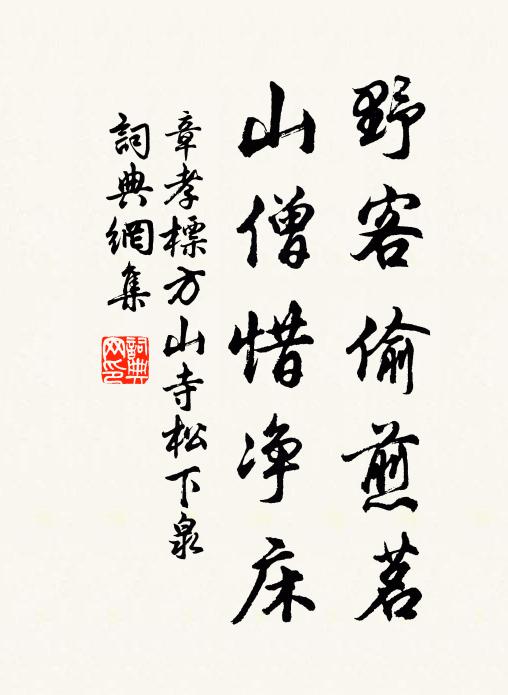 野客偷煎茗
山僧惜净床
章孝標方山寺松下泉
詞典網集
詞典網印